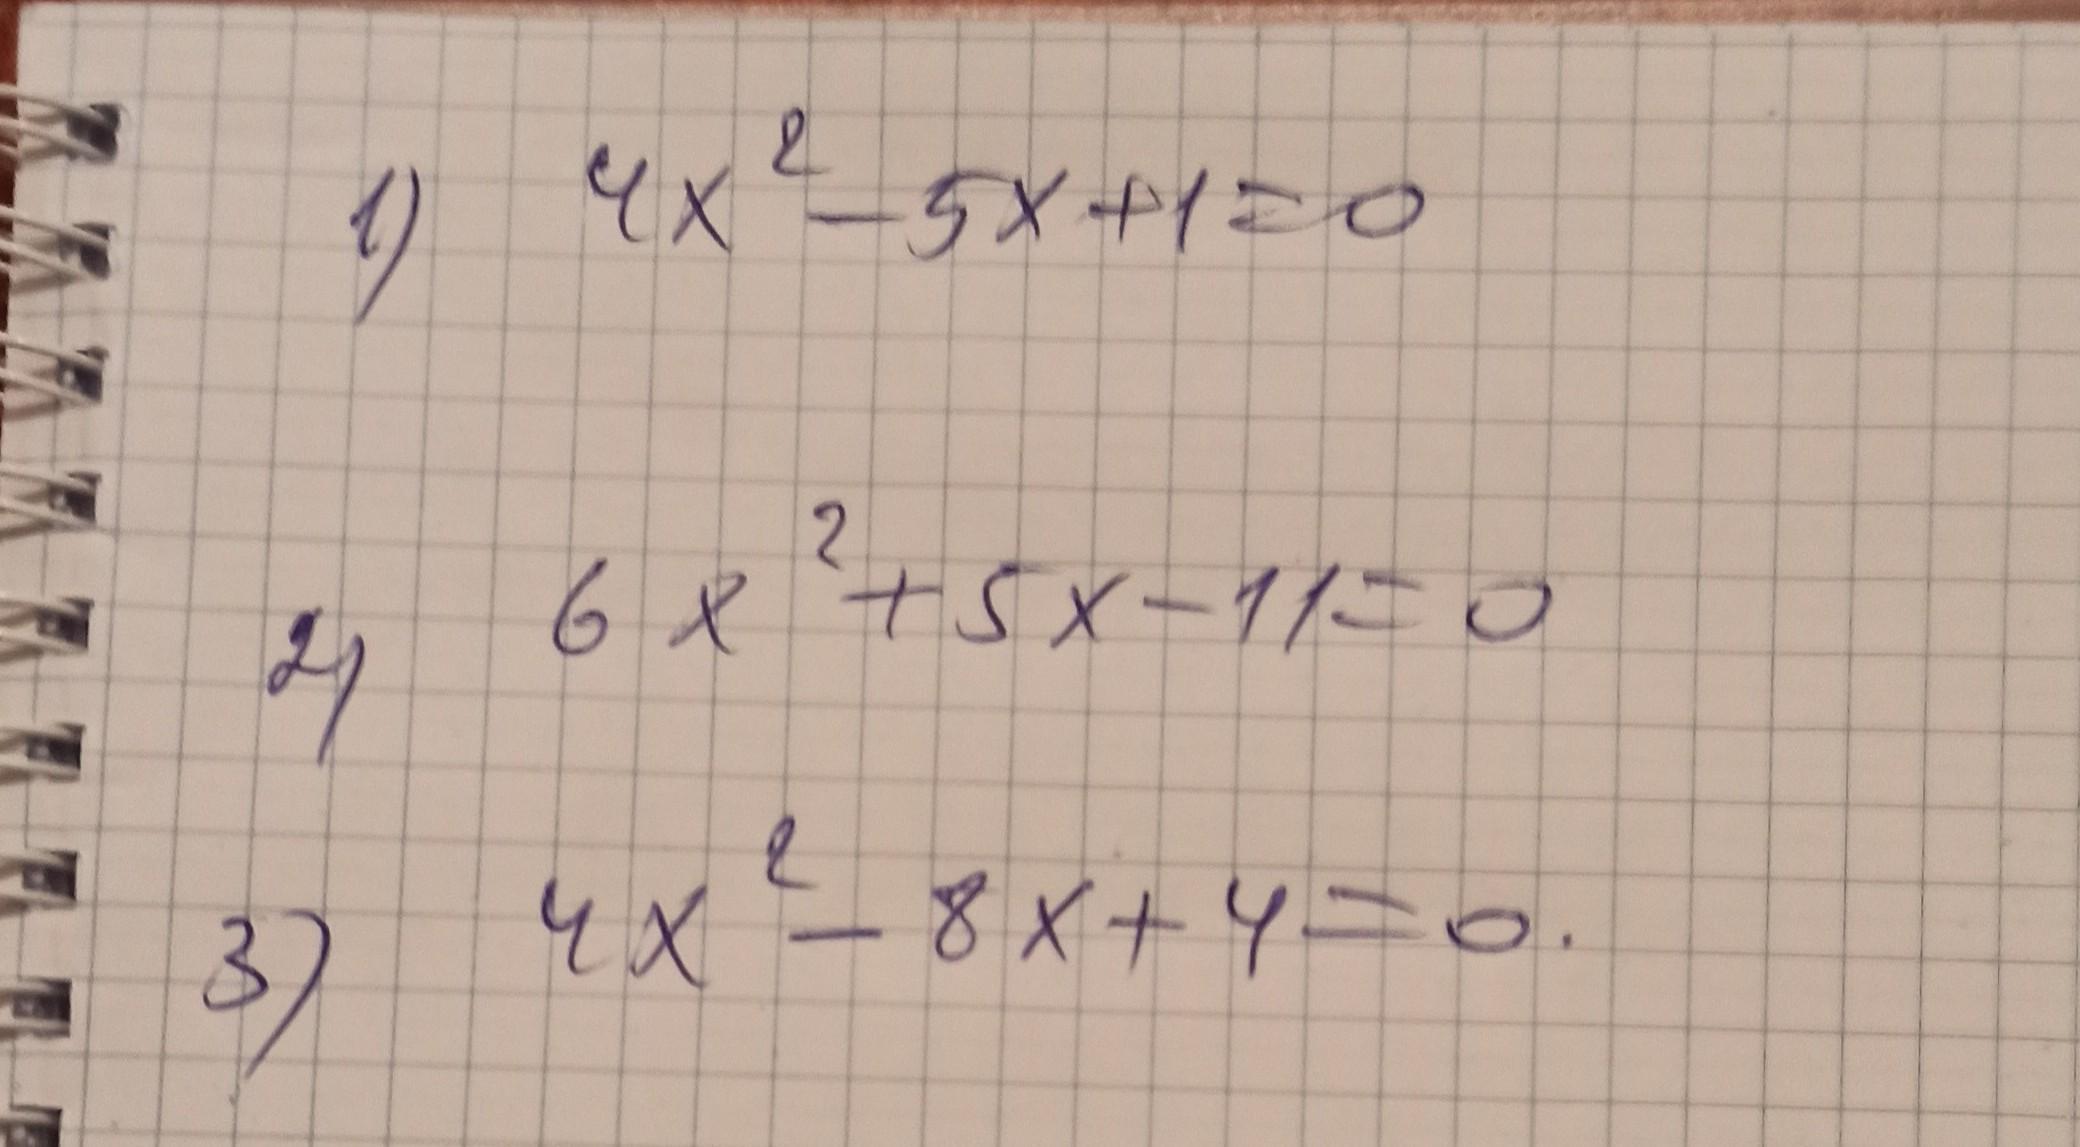 1) 4x² - 5x + 1 = 0
2) 6x² + 5x - 11 = 0
3) 4x² - 8x + 4 = 0.